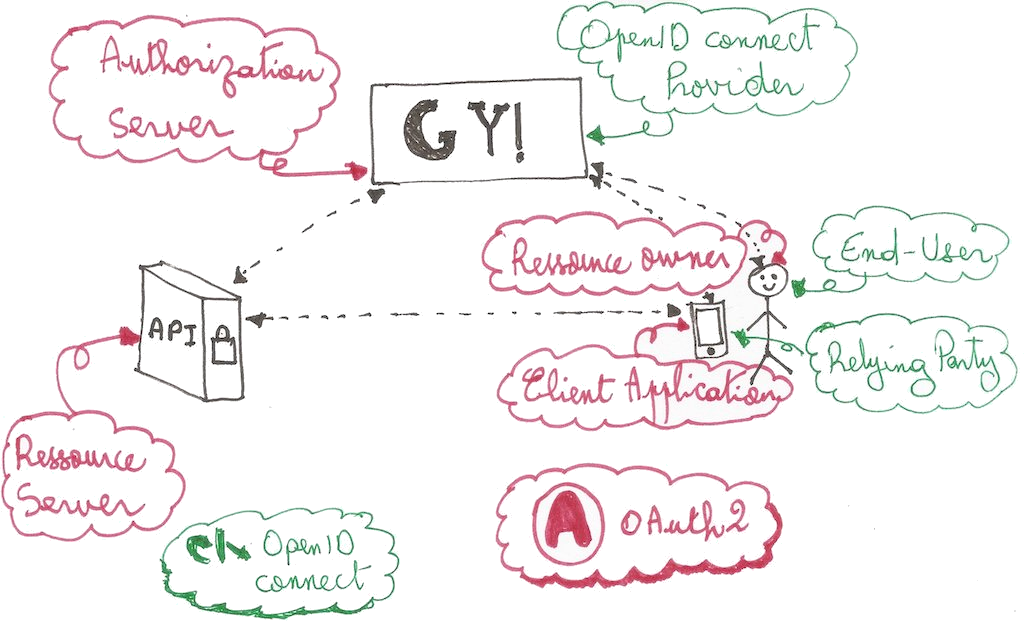 Authorization
Server
OpenID connect
Provider
G Y!
Ressource owner
End-User
API
Relying Party
Client Application
Ressource
Server
OpenID
connect
A OAuth2